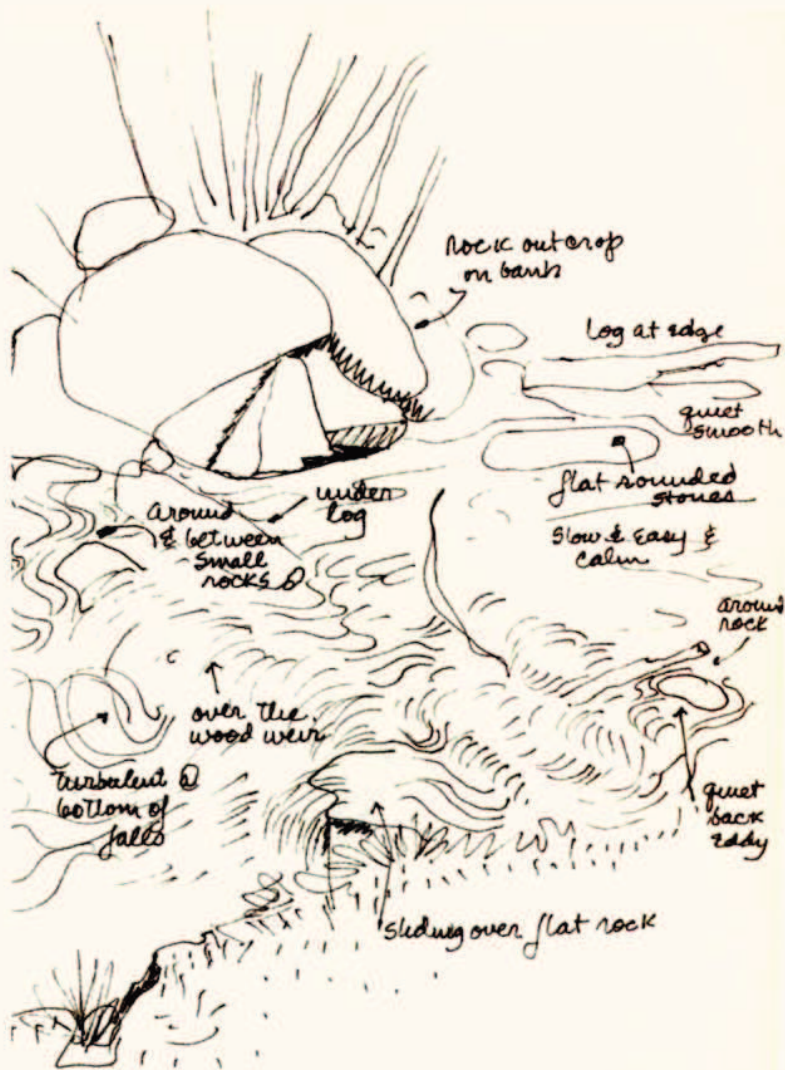 rock outcrop
on bank
log at edge
quiet
smooth
flat rounded
stones
slow & easy &
calm
under
log
around
& between
small
rocks
around
rock
over the
wood weir
turbulent @
bottom of
falls
quiet
back
eddy
sliding over flat rock